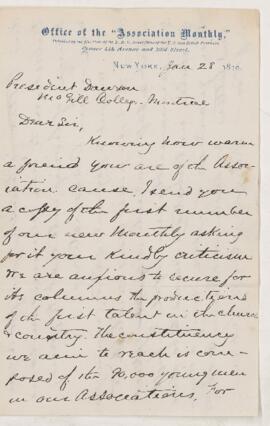 Office of the "Association Monthly,"
Corner 4th Avenue and 23rd Street,
New York, Jan 28 1870.
President Dawson
McGill College. Montreal
Dear Sir,
Knowing how warm
a friend you are of the Asso-
ciation cause, I send you
a copy of the first number
of our new Monthly asking
for it your kindly criticism
We are anxious to secure for
its columns the productions
of the first talent in the church
& country. The constituency
we aim to reach is com-
posed of the 90,000 young men
in our Associations. For